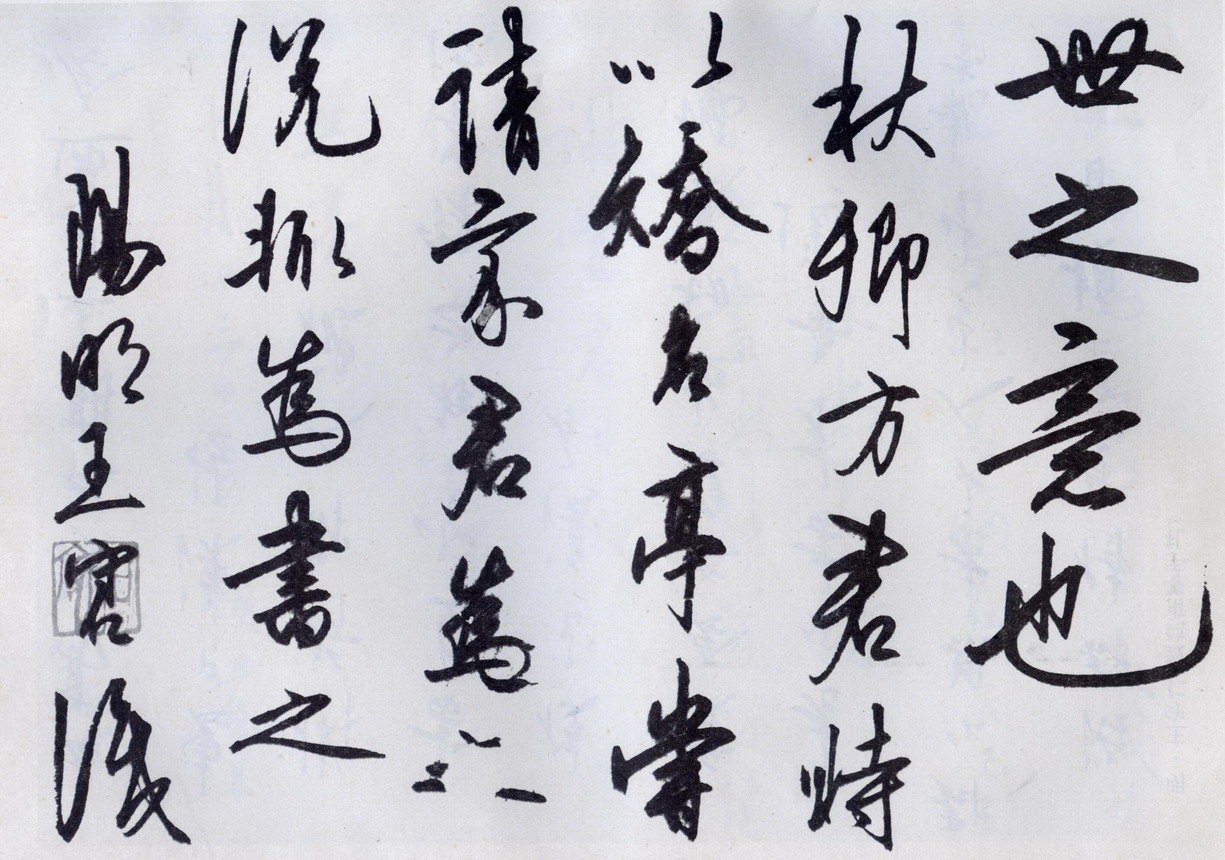 世之意也
秋卿方君時
以矯名亭嘗
請家君為之
說輒為書之
陽明王守仁識